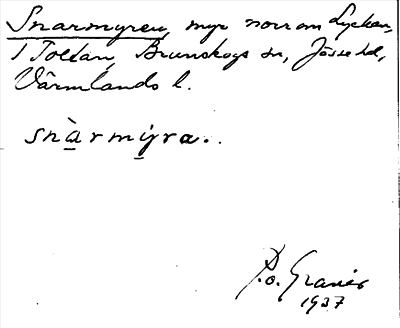 Snarmyren, myr norr om Lyckan,
1 Toltan, Brunskogs sn, Jösse hd,
Värmlands l.
snàrmyra.
P.o. Granér
1937